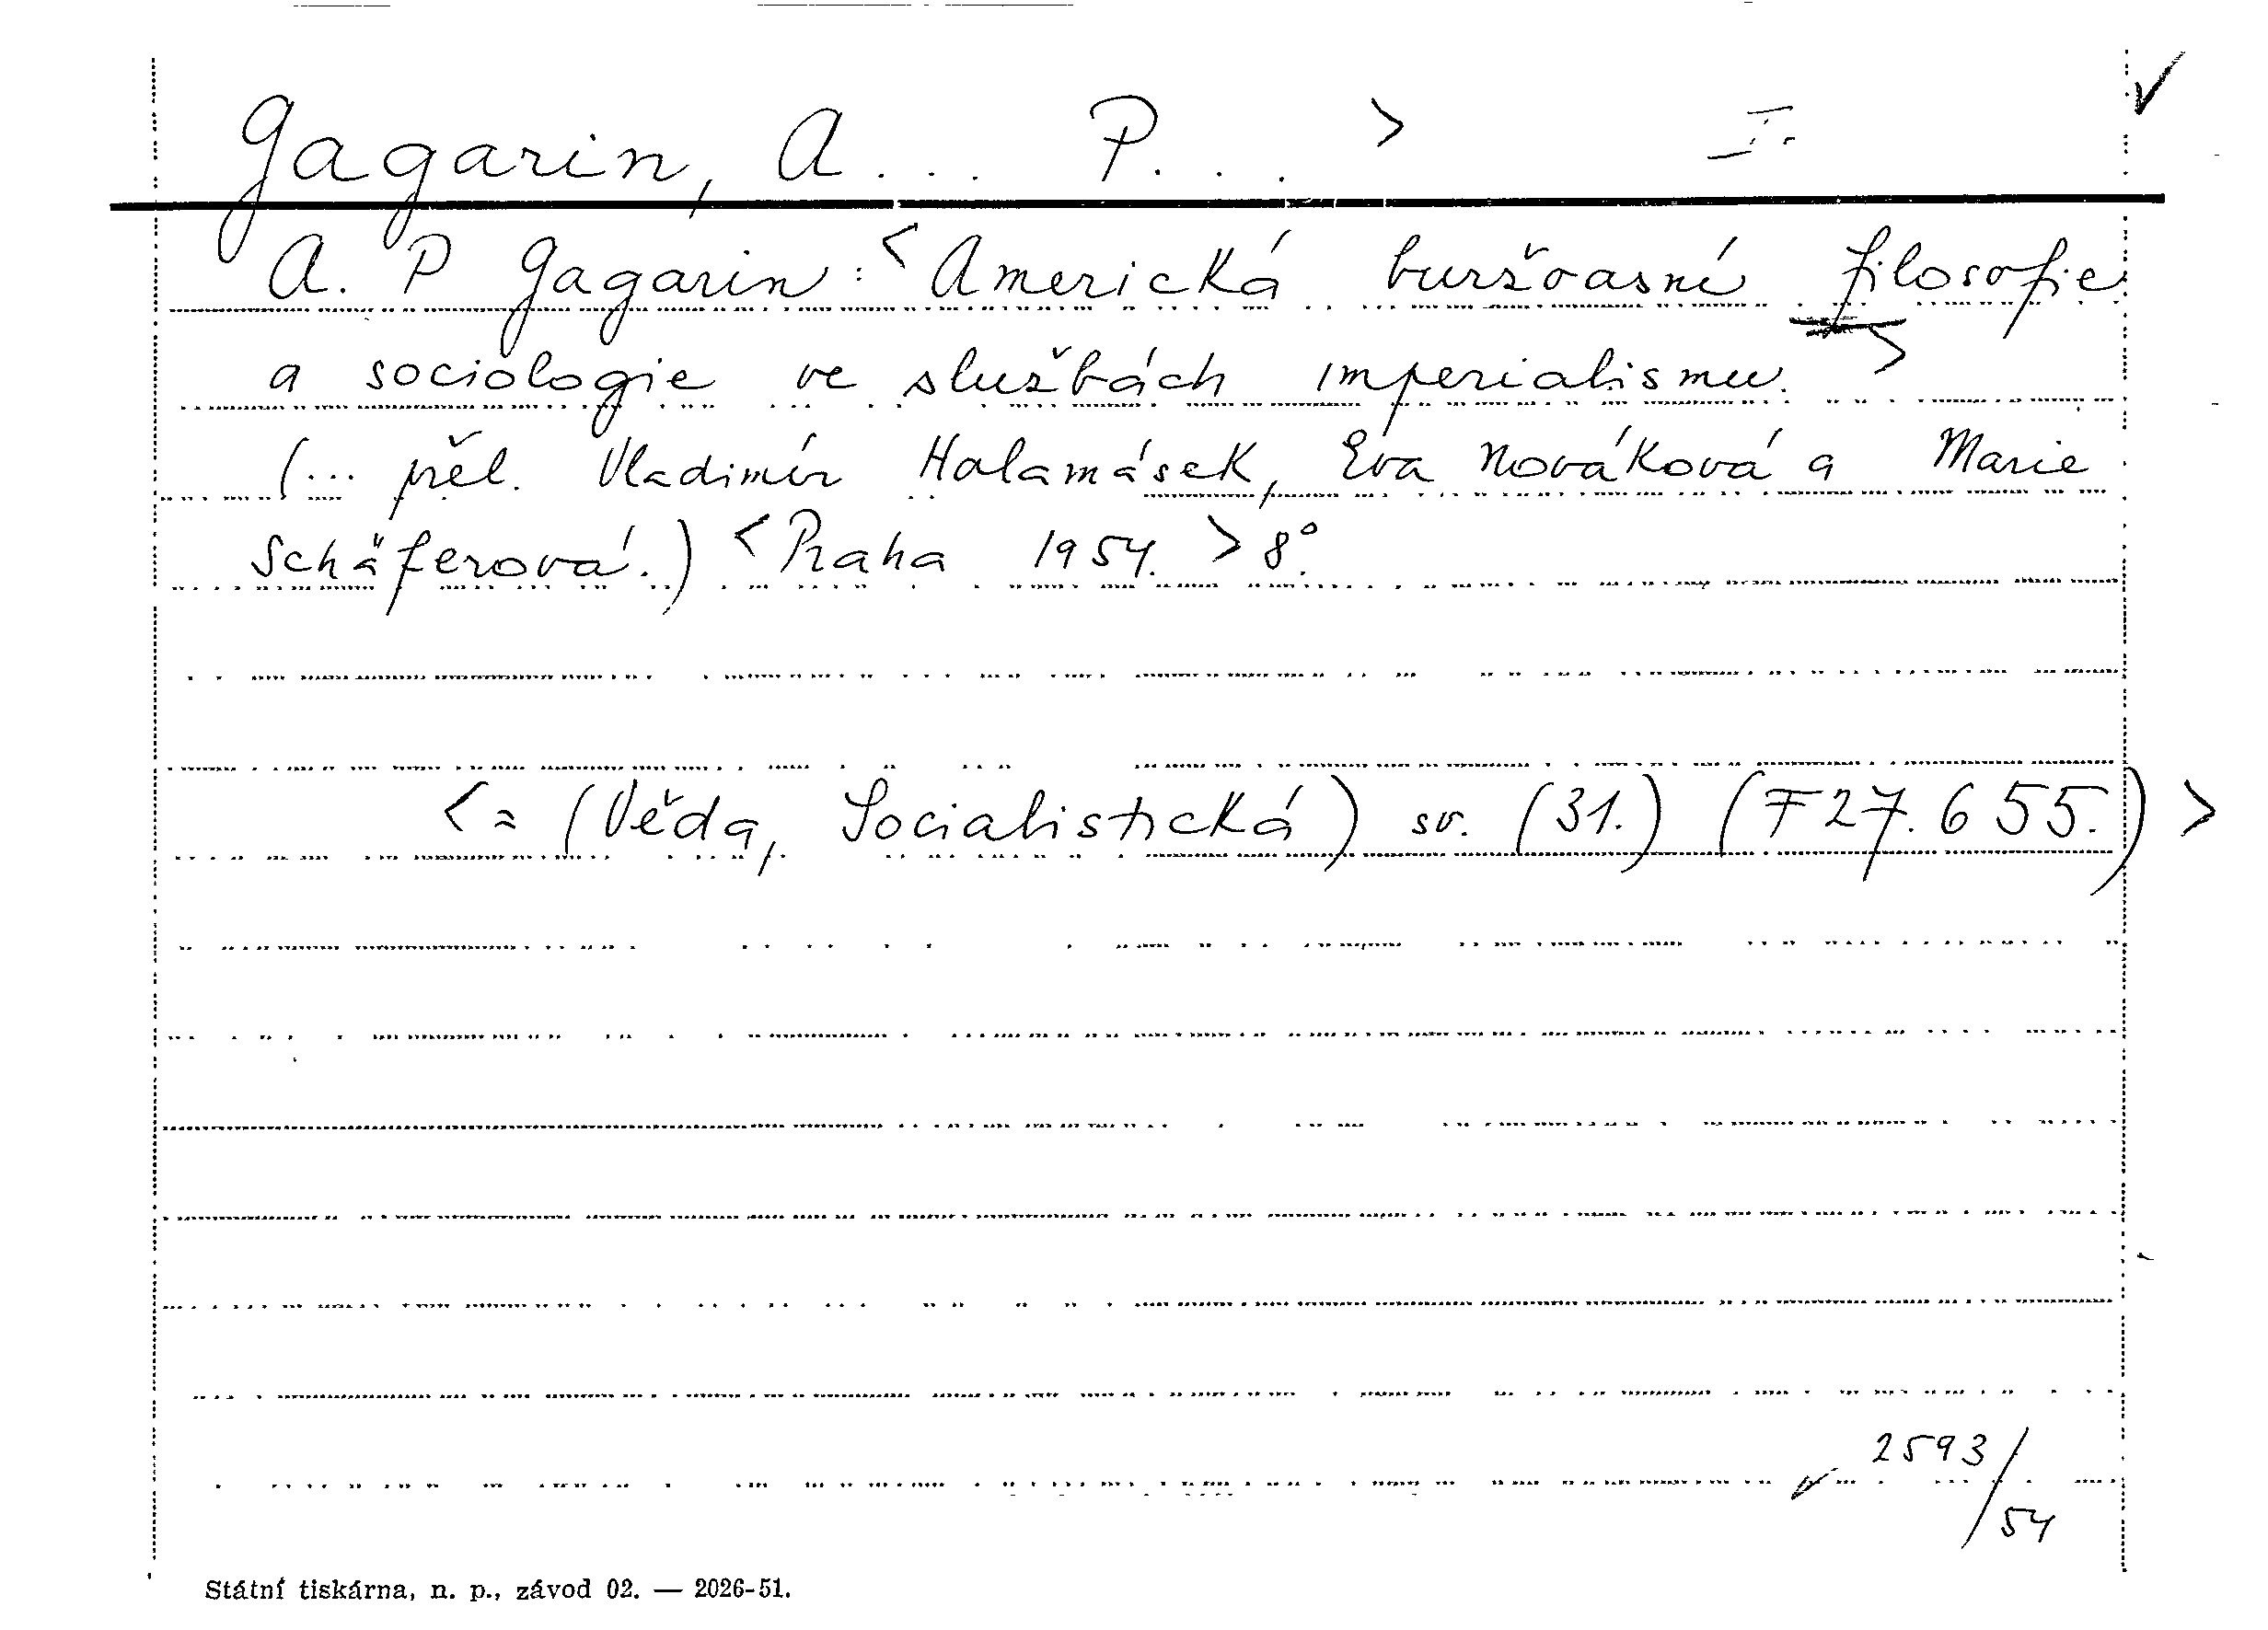 Gagarin, A... P... > I.
A. P Gagarin: <Americká buržoasní filosofie
a sociologie ve službách imperialismu. >
(... přel. Vladimír Halamásek, Eva Nováková a Marie
Schäferová.) <Praha 1954. > 8°.
<= (Věda, Socialistická) sv. (31.) (F27.655.) >
2593/54
Státní tiskárna, n. p., závod 02. — 2026-51.